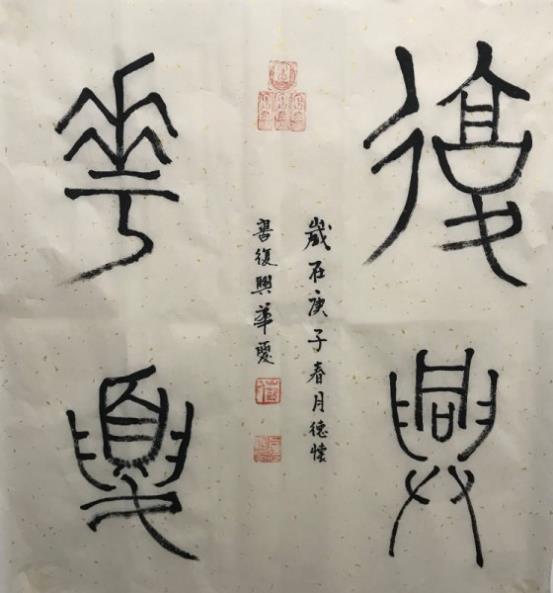 復興
華夏
歲在庚子春月德懷
書復興華夏